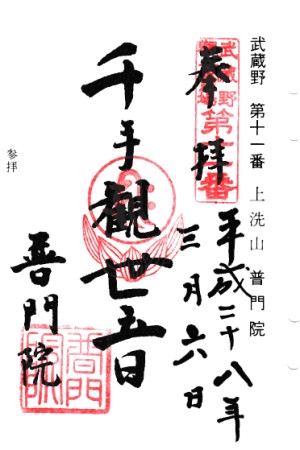 武蔵野 第十一番 上洗山 普門院
武蔵野
第十一番
奉拜
平成二十八年
三月六日
千手觀世音
普門院
参拝